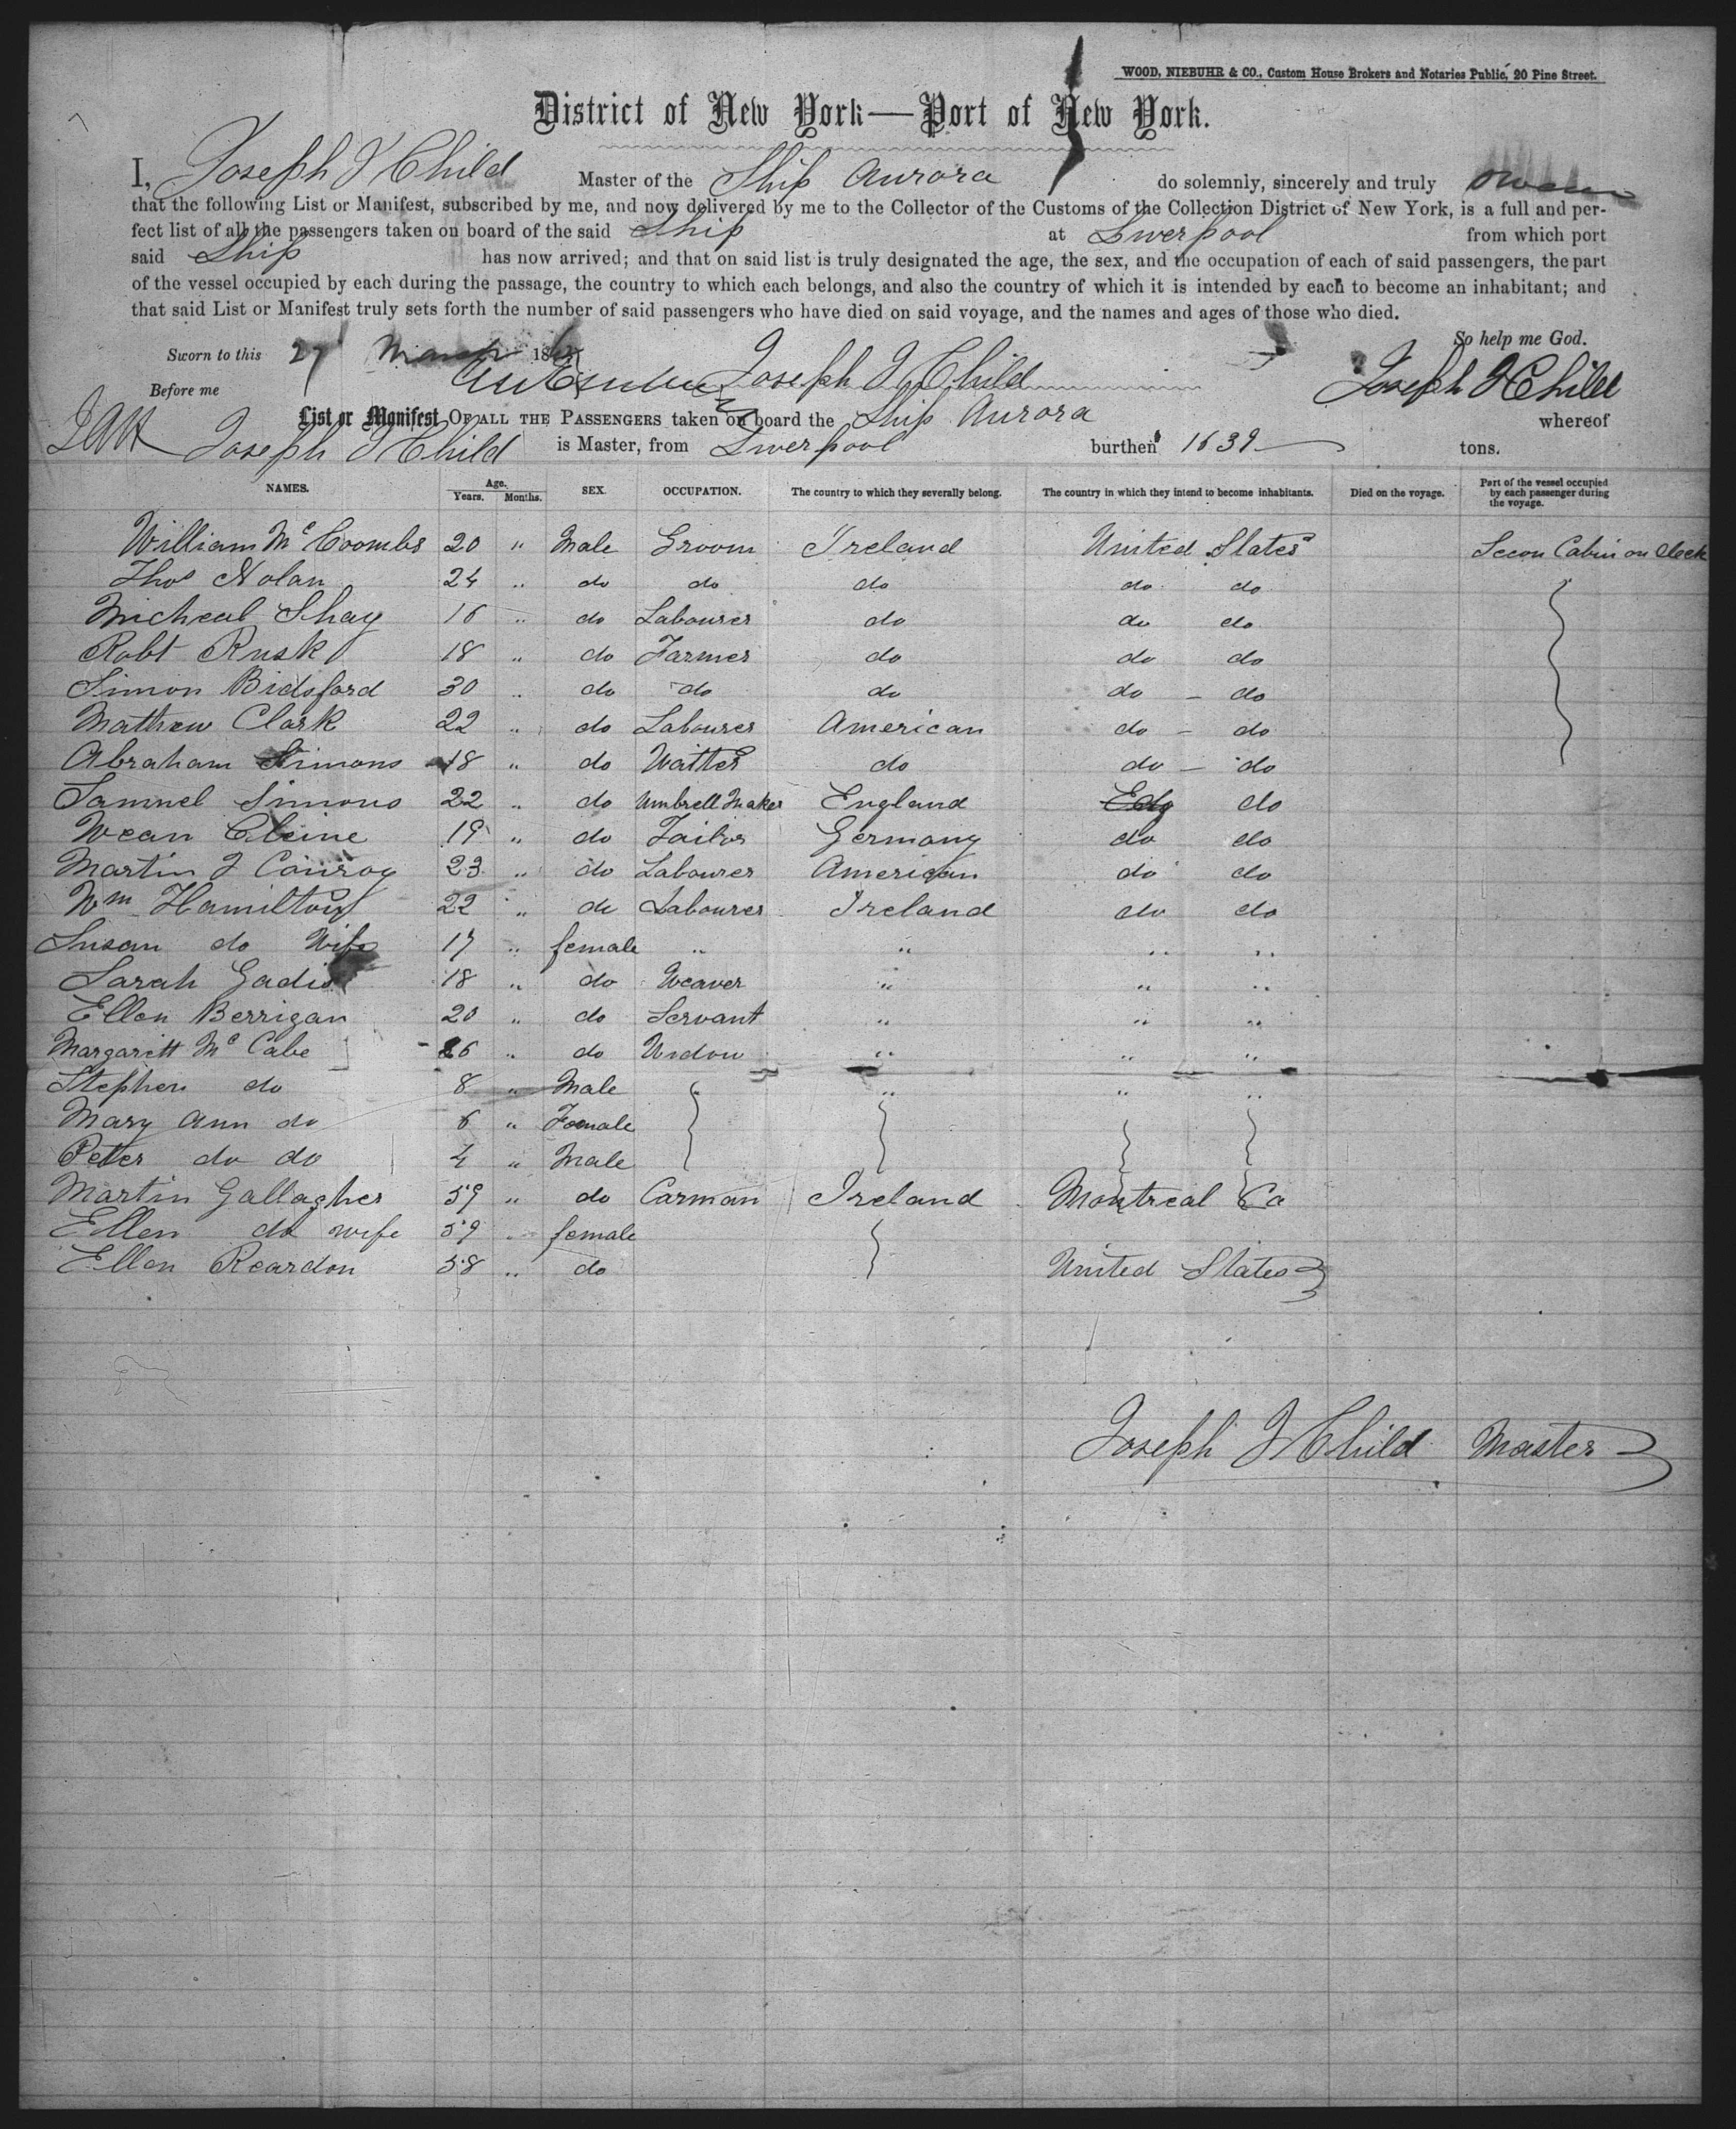 WOOD, NIEBUHR & CO., Custom House Brokers and Notaries Public, 20 Pine Street.
District of New York—Port of New York.
I, Joseph J Child Master of the Ship Aurora do solemnly, sincerely and truly swear
that the following List or Manifest, subscribed by me, and now delivered by me to the Collector of the Customs of the Collection District of New York, is a full and per-
fect list of all the passengers taken on board of the said Ship at Liverpool from which port
said Ship has now arrived; and that on said list is truly designated the age, the sex, and the occupation of each of said passengers, the part
of the vessel occupied by each during the passage, the country to which each belongs, and also the country of which it is intended by each to become an inhabitant; and
that said List or Manifest truly sets forth the number of said passengers who have died on said voyage, and the names and ages of those who died.
So help me God.
Sworn to this 27 March 186
Joseph J Child Joseph J Child
Before me
List or Manifest OF ALL THE PASSENGERS taken on board the Ship Aurora whereof
Joseph J Child is Master, from Liverpool burthen 1639 tons.
NAMES. Age. Years. Months. SEX. OCCUPATION. The country to which they severally belong. The country in which they intend to become inhabitants. Died on the voyage. Part of the vessel occupied by each passenger during the voyage.
William Mc Coombs 20 " Male Groom Ireland United States Secon Cabin on deck
Thos Nolan 24 " do do do do do
Micheal Shay 16 " do Labourer do do do
Robt Rusk 18 " do Farmer do do do
Simon Bidsford 30 " do do do do - do
Mathew Clark 22 " do Labourer American do - do
Abraham Simons 18 " do Waitter do do - do
Samuel Simons 22 " do Umbrell Maker England do
Wean Cleine 19 " do Tailor Germany do do
Martin J Conroy 23 " do Labourer American do do
Wm Hamilton 22 " do Labourer Ireland do do
Susan do Wife 17 " female " " " "
Sarah Gadis 18 " do Weaver " " "
Ellen Berrigan 20 " do Servant " " "
Margarett Mc Cabe 26 " do Widow " " "
Stephen do 8 " Male " " "
Mary Ann do 6 " Female
Peter do do 4 " Male
Martin Gallagher 59 " do Carman Ireland Montreal Ca
Ellen do wife 59 " female
Ellen Reardon 58 " do United States
Joseph J Child Master